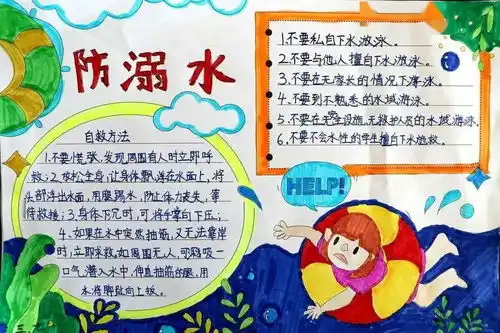 防溺水
1.不要私自下水游泳。
2.不要与他人擅自下水游泳。
3.不要在无家长的情况下游泳。
4.不要到不熟悉的水域游泳。
5.不要在无安全设施、无救护人员的水域游泳。
6.不要不会水性的学生擅自下水施救。
自救方法
1.不要慌张,发现周围有人时立即呼
救;2.放松全身,让身体飘浮在水面上,将
头部浮出水面,用脚踢水,防止体力丧失,等
待救援;3.身体下沉时,可将手掌向下压;
4.如果在水中突然抽筋,又无法靠岸
时,立即求救,如周围无人,可深吸一
口气潜入水中,伸直抽筋的腿,用
手将脚趾向上扳。
HELP!